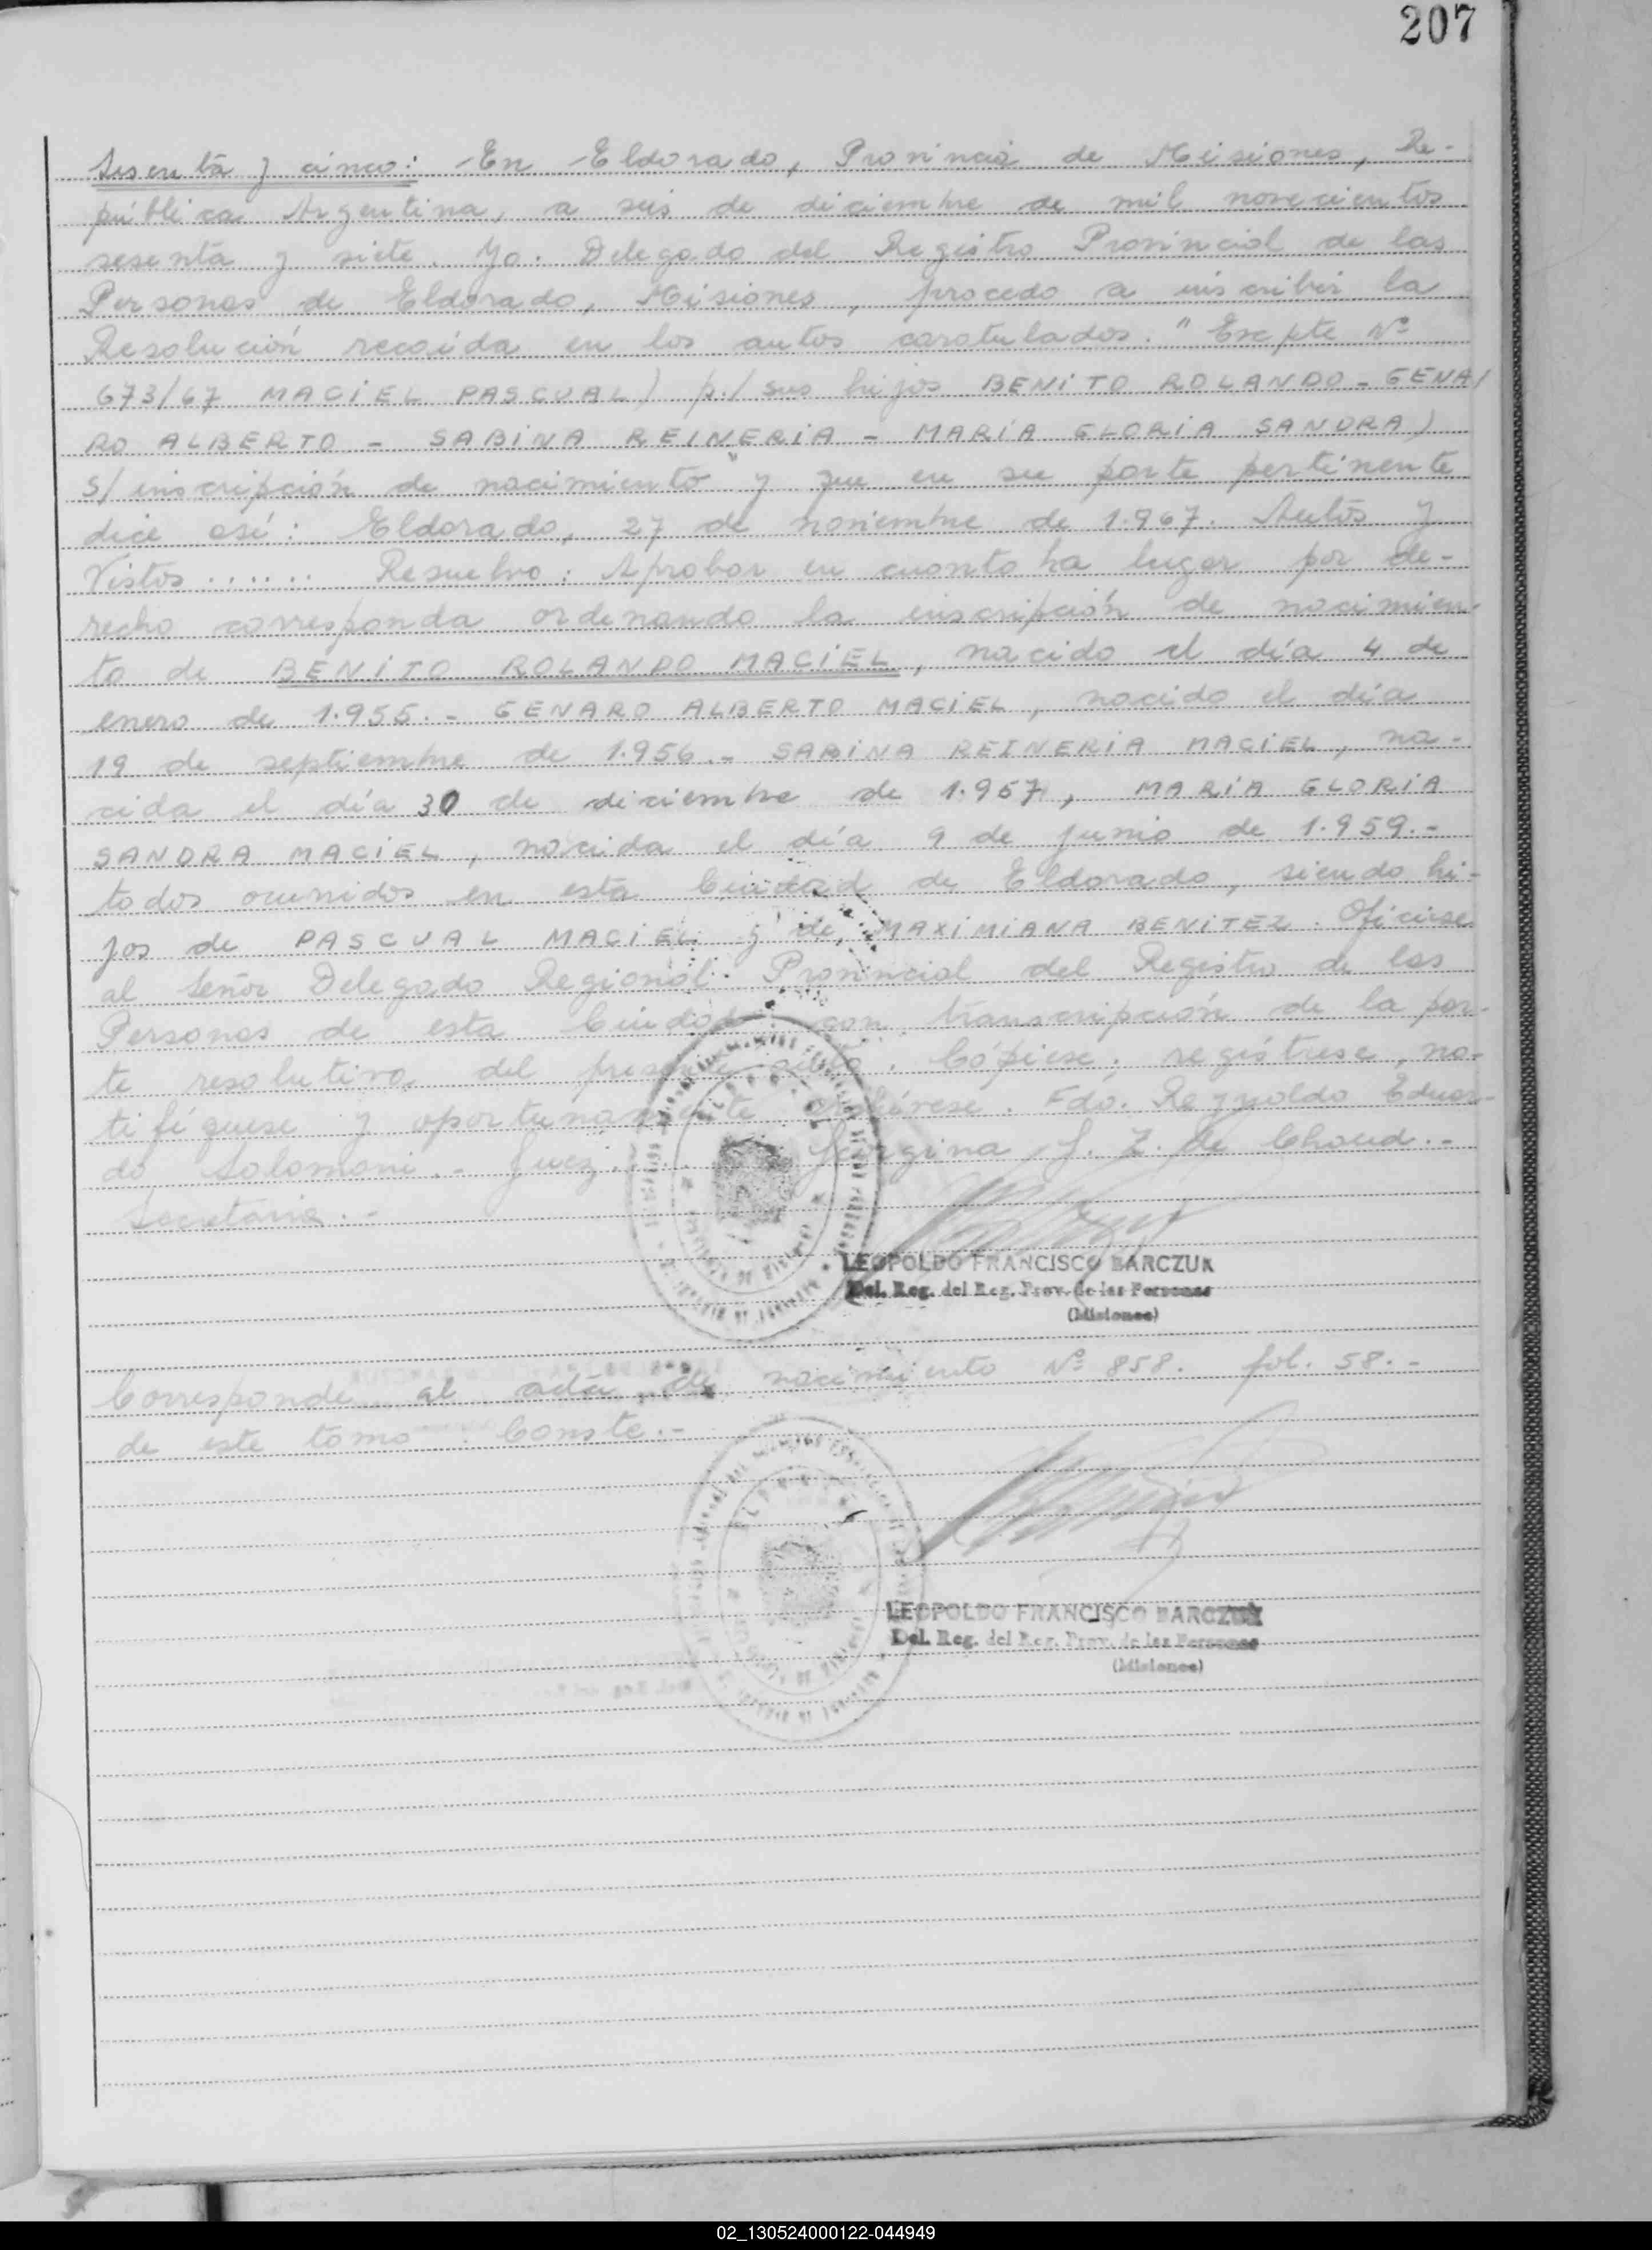 207
Sesenta y cinco: En Eldorado, Provincia de Misiones, Re-
pública Argentina, a seis de diciembre de mil novecientos
sesenta y siete. Yo. Delegado del Registro Provincial de las
Personas de Eldorado, Misiones, procedo a inscribir la
Resolución recaída en los autos caratulados. "Expte Nº
673/67 MACIEL PASCUAL) p./ sus hijos BENITO ROLANDO - GENA/
RO ALBERTO - SABINA REINERIA - MARÍA GLORIA SANDRA)
s/ inscripción de nacimiento" y que en su parte pertinente
dice así: Eldorado, 27 de noviembre de 1.967. Autos y
Vistos ...... Resuelvo: Aprobar en cuanto ha lugar por de-
recho corresponda ordenando la inscripción de nacimien-
to de BENITO ROLANDO MACIEL, nacido el día 4 de
enero de 1.955.- GENARO ALBERTO MACIEL, nacido el día
19 de septiembre de 1.956.- SABINA REINERIA MACIEL, na-
cida el día 30 de diciembre de 1.957, MARÍA GLORIA
SANDRA MACIEL, nacida el día 9 de junio de 1.959.-
todos ocurridos en esta Ciudad de Eldorado, siendo hi-
jos de PASCUAL MACIEL y de MAXIMIANA BENITEZ. Ofíciese
al Señor Delegado Regional Provincial del Registro de las
Personas de esta Ciudad con transcripción de la par-
te resolutiva del presente auto. Cópiese, regístrese, no-
tifíquese y oportunamente archívese. Fdo. Reynoldo Eduar-
do Solomoni.- Juez. Jorgina J. Z. de Choud.-
Secretaria.-
LEOPOLDO FRANCISCO BARCZUK
Del. Reg. del Reg. Prov. de las Personas
(Misiones)
Corresponde al acta de nacimiento Nº 858. fol. 58.-
de este tomo. Conste.-
LEOPOLDO FRANCISCO BARCZUK
Del. Reg. del Reg. Prov. de las Personas
(Misiones)
02_130524000122-044949